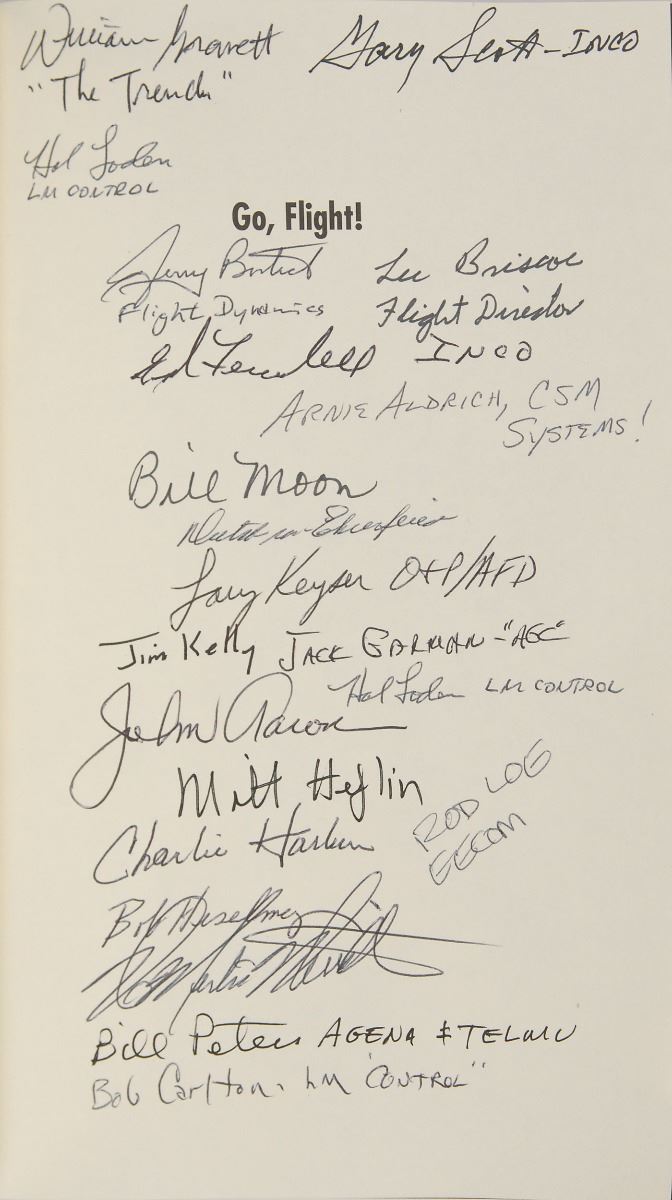 William Gravett
Gary Scott - INCO
"The Trench"
Hal Loden
LM CONTROL
Go, Flight!
Jerry Bostick
Lee Briscoe
Flight Dynamics
Flight Director
Ed Fendell INCO
ARNIE ALDRICH, CSM
SYSTEMS!
Bill Moon
Larry Keyser O&P/AFD
Jim Kelly JACK GARMAN - "AGC"
Hal Loden LM CONTROL
John Aaron
Milt Heflin
ROD LOE
EECOM
Charlie Harlan
Bob
Bill Peters AGENA & TELMU
Bob Carlton, LM "CONTROL"